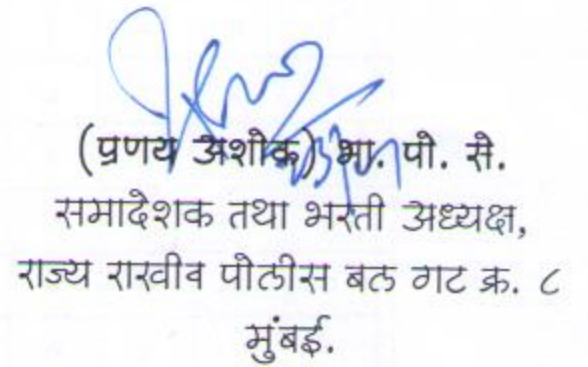 (प्रणय अशोक) भा. पो. से.
समादेशक तथा भरती अध्यक्ष,
राज्य राखीव पोलीस बल गट क्र. ८
मुंबई.